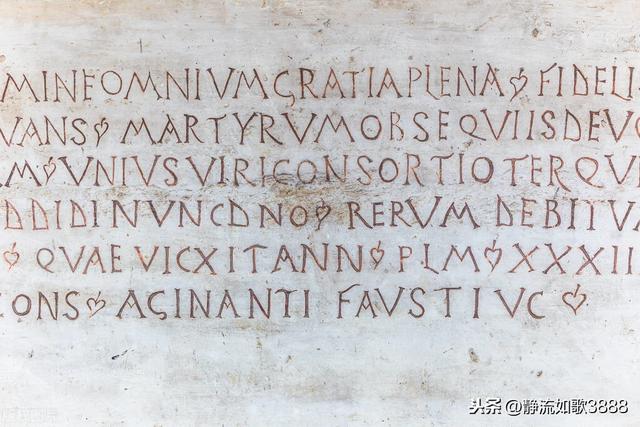 MINEOMNIVMGRATIAPLENA❦ FIDELI
VANS❦ MARTYRVMOBSEQVIISDEVO
M❦VNIVSVIRICONSORTIOTERQV
DDIDINVNCDNO❦ RERVM DEBITV
❦ QVAE VICXITANN❦ PLM❦XXXII
CONS❦ AGINANTI FAVSTI VC ❦
头条 @静流如歌3888